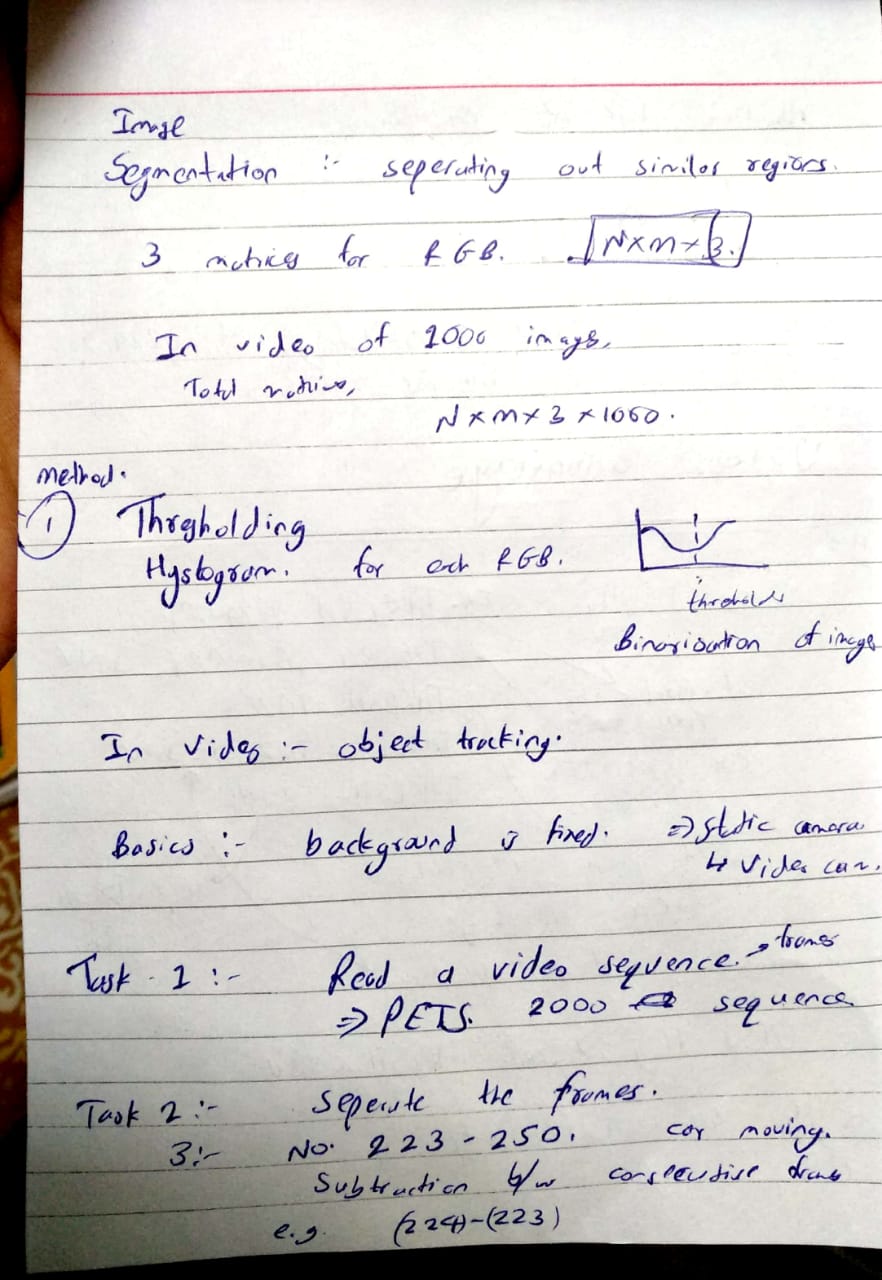 Image
Segmentation :- seperating out similar regions.
3 matrices for RGB. N×M×3.
In video of 1000 images,
Total matrices,
N×M×3×1000.
Method.
① Thresholding
Hystogram. for each RGB.
thresholds
Binarisation of image
In Video :- object tracking.
Basics :- background is fixed. ⇒ static camera
↳ Video cam.
Task - 1 :- Read a video sequence. → frames
⇒ PETS. 2000 sequence
Task 2 :- Seperate the frames.
3 :- No. 223 - 250. car moving.
Subtraction b/w consecutive frames
e.g. (224)-(223)